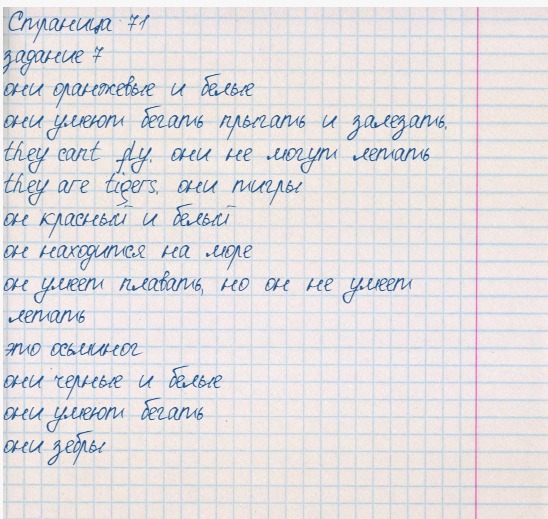 Страница 71
задание 7
они оранжевые и белые
они умеют бегать прыгать и залезать.
they cant fly. они не могут летать
they are tigers. они тигры
он красный и белый
он находится на море
он умеет плавать, но он не умеет
летать
это осьминог
они черные и белые
они умеют бегать
они зебры